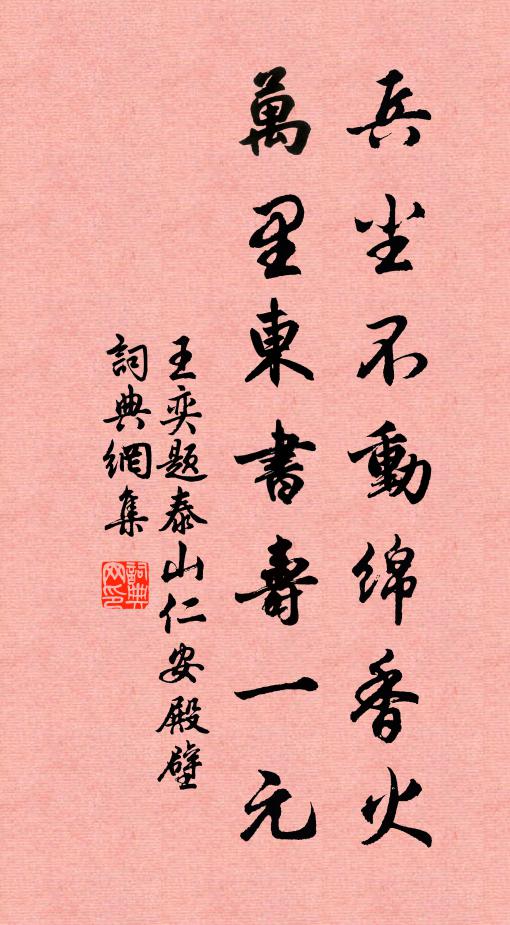 兵尘不動綿香火
萬里東書壽一元
王奕题泰山仁安殿壁
詞典網集
詞典
网印